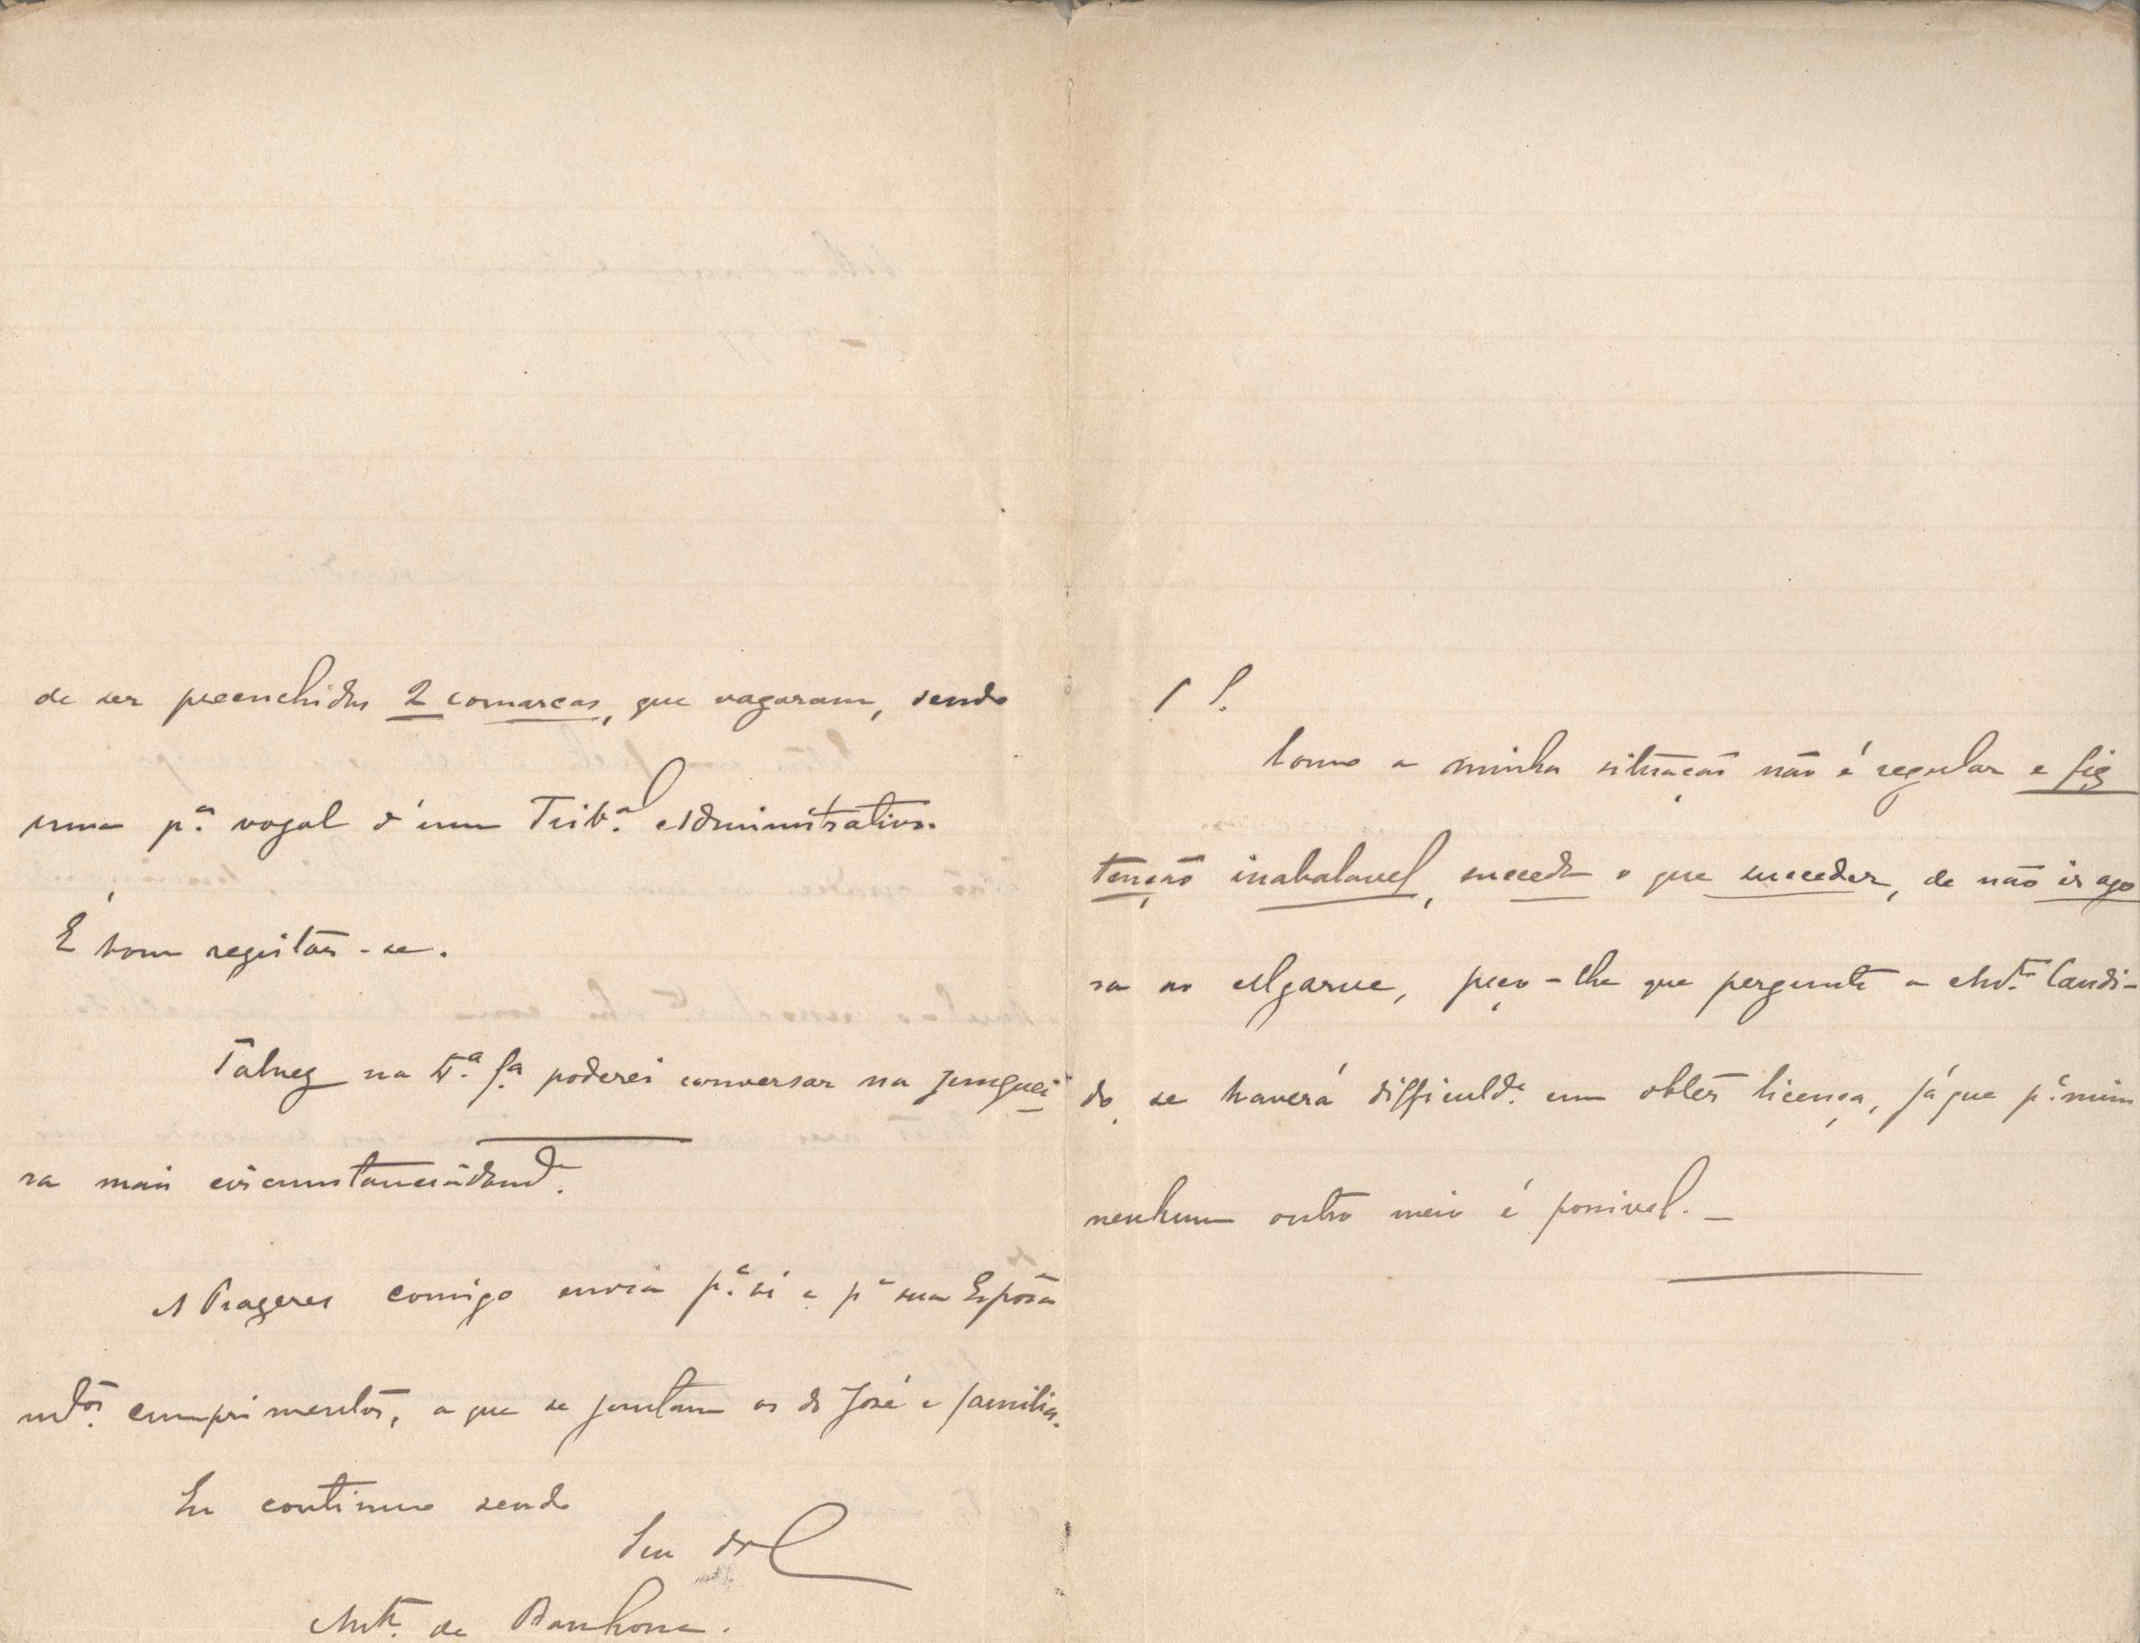 de ser preenchidas 2 comarcas, que vagaram, sendo
uma p.ª vogal d'um Trib.al Administrativo.
É bom registar-se.
Talvez na 4.ª f.ª poderei conversar na Junquei
ra mais circumstanciadam.e
A Prazeres comigo envia p.ª si e p.ª sua Esposa
m.tos cumprimentos, a que se juntam os do José e familia.
Eu continuo sendo
Seu
Ant.º de
P S.
Como a minha situação não é regular e fiz
tenção inabalavel, succeda o que succeder, de não ir ago
ra ao Algarve, peço-lhe que pergunte a Ant.º Candi-
do, se haverá difficuld.e em obter licença, já que p.ª mim
nenhum outro meio é possivel. _